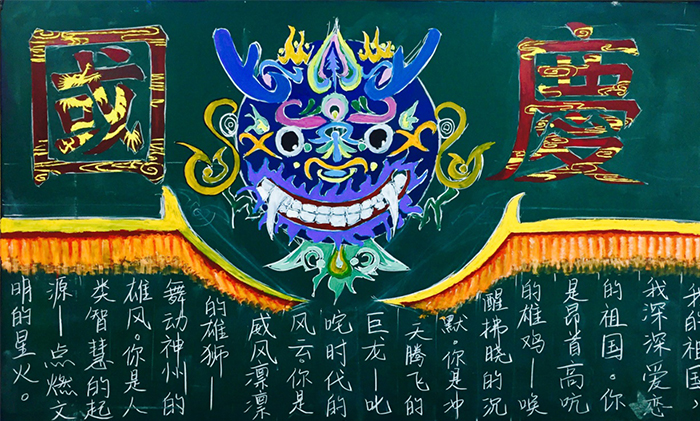 國慶
我的祖国，
我深深爱恋
的祖国。你
是昂首高吭
的雄鸡—唤
醒拂晓的沉
默。你是冲
天腾飞的
巨龙—叱
咤时代的
风云。你是
威风凛凛
的雄狮—
舞动神州的
雄风。你是人
类智慧的起
源—点燃文
明的星火。